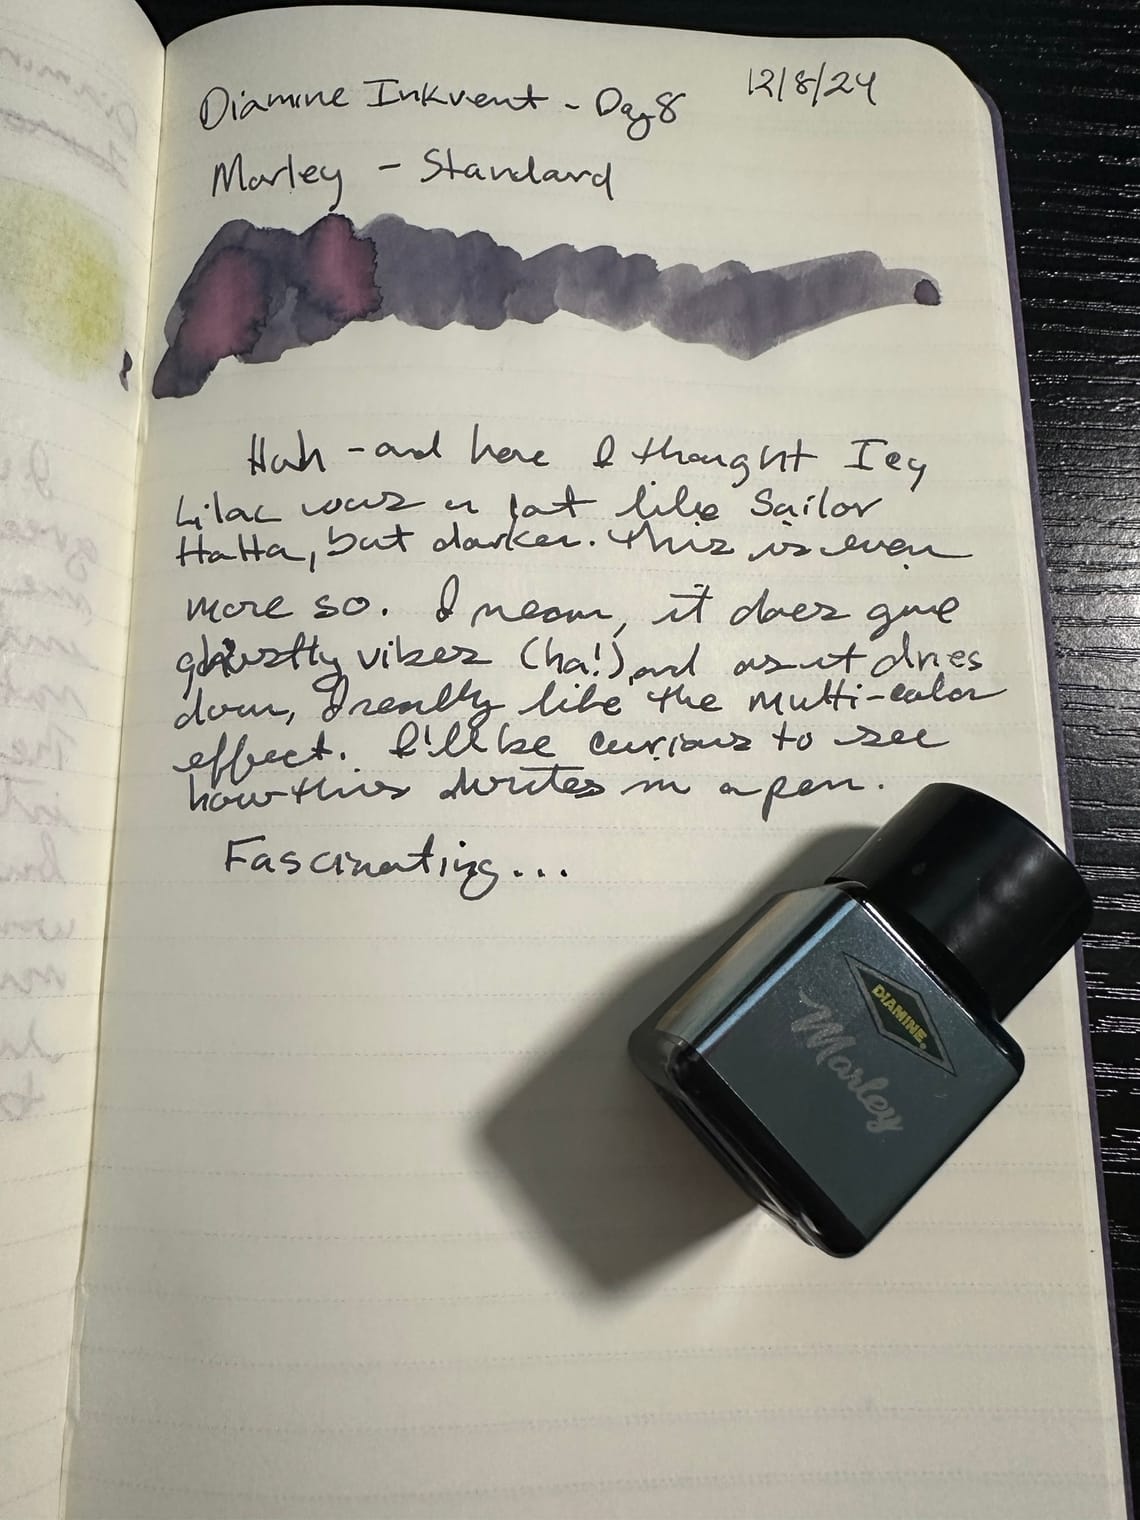 Diamine Inkvent - Day 8
12/8/24
Marley - Standard
Huh - and here I thought Icy
Lilac was a lot like Sailor
HaHa, but darker. This is even
more so. I mean, it does give
ghostly vibes (ha!), and as it dries
down, I really like the multi-color
effect. I'll be curious to see
how this writes in a pen.
Fascinating...
DIAMINE
Marley